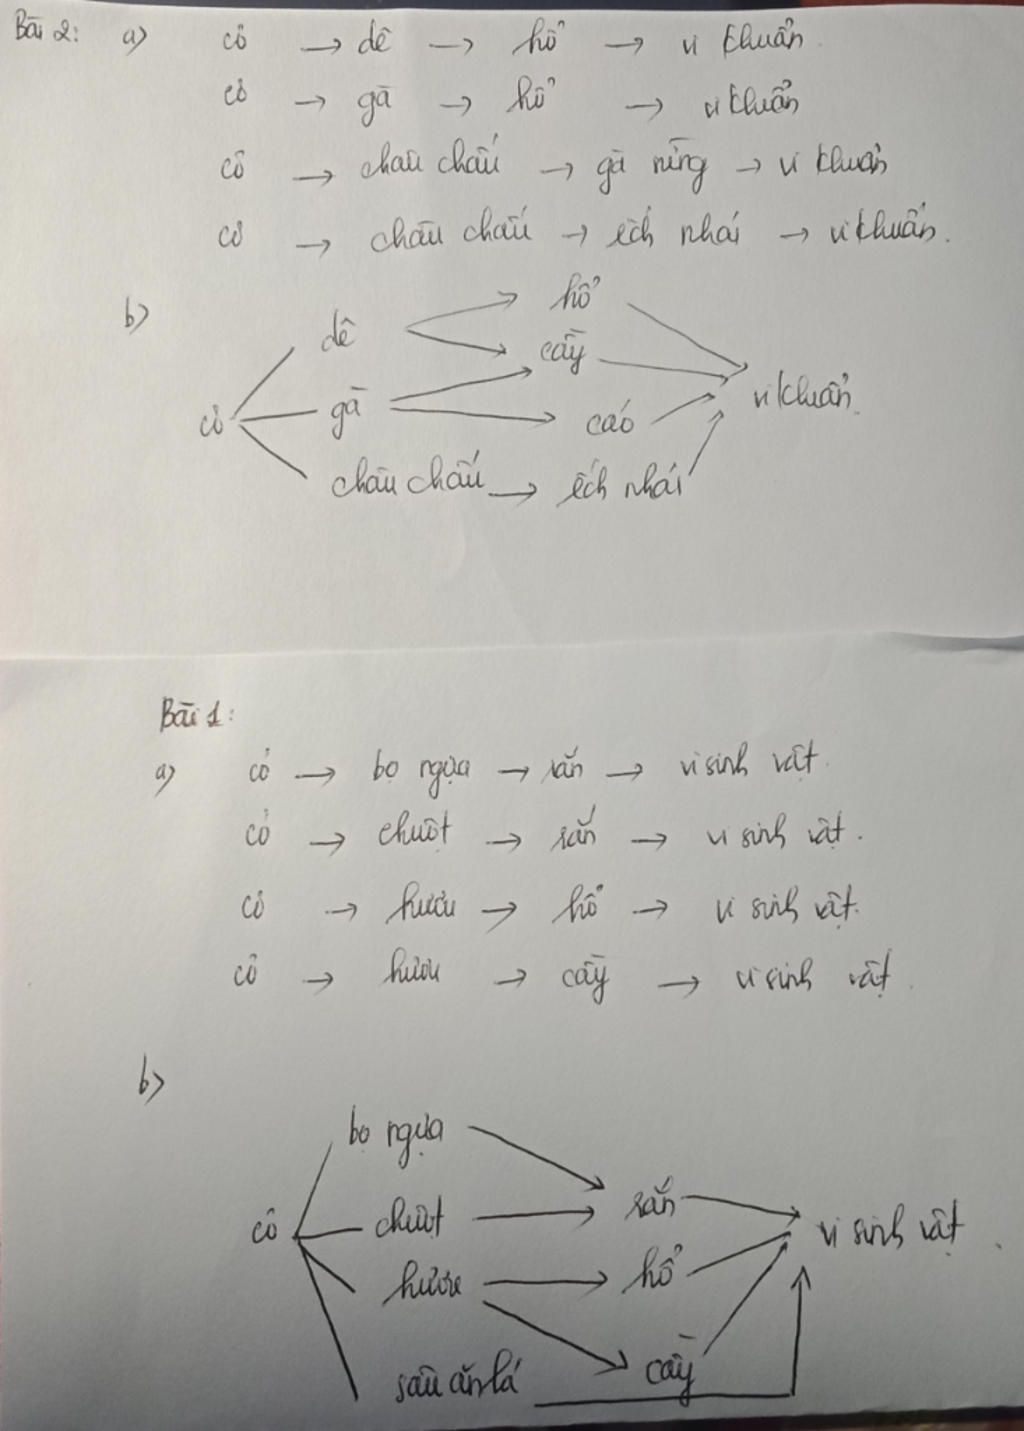 Bài 2: a) cỏ → dê → hổ → vi khuẩn.
cỏ → gà → hổ → vi khuẩn
cỏ → châu chấu → gà rừng → vi khuẩn
cỏ → châu chấu → ếch nhái → vi khuẩn.
b)
hổ
dê
cầy
cỏ gà vi khuẩn.
cáo
châu chấu → ếch nhái
Bài 1:
a) cỏ → bọ ngựa → rắn → vi sinh vật.
cỏ → chuột → rắn → vi sinh vật.
cỏ → hươu → hổ → vi sinh vật.
cỏ → hươu → cầy → vi sinh vật.
b)
bọ ngựa
cỏ chuột → rắn → vi sinh vật.
hươu → hổ
sâu ăn lá cầy